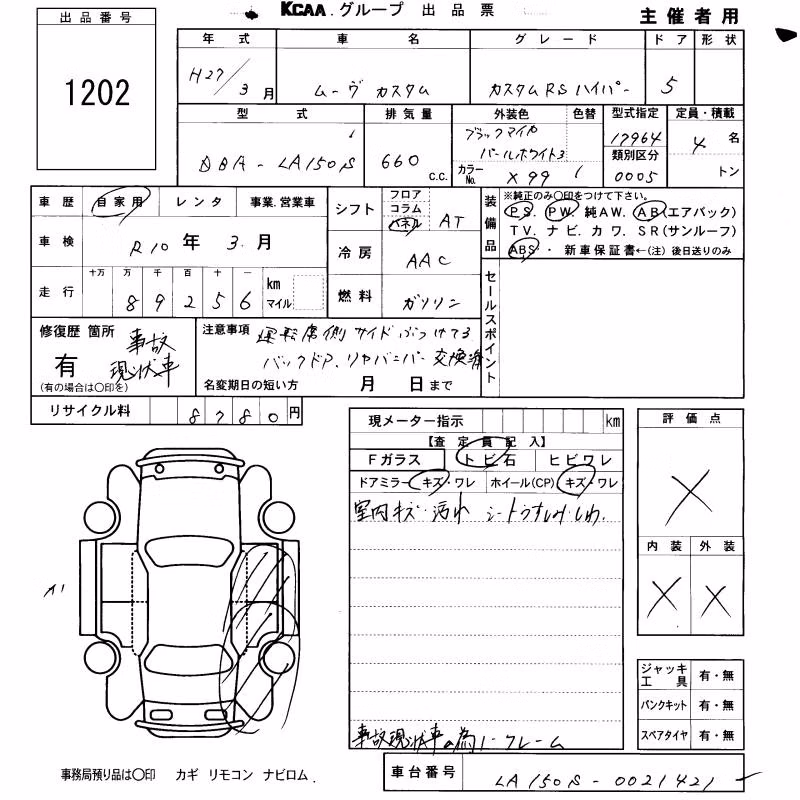 KCAA.グループ 出品票
主催者用
出品番号
1202
年式 車名 グレード ドア 形状
H27/3月 ムーヴ カスタム カスタムRS ハイパー 5
型式 排気量 外装色 色替 型式指定 定員・積載
DBA-LA150S 660 c.c. ブラックマイカ パールホワイト3 17964 4 名
類別区分
カラーNo. X99 0005 トン
車歴 自家用 レンタ 事業.営業車
シフト フロア コラム パネル AT
装備品 ※純正のみ〇印をつけて下さい。
PS. PW. 純AW. AB(エアバック)
TV. ナビ. カワ. SR(サンルーフ)
ABS・新車保証書←(注)後日送りのみ
車検 R10年 3.月
冷房 AAC
走行 十万 万 千 百 十 一
89256 km マイル
燃料 ガソリン
セールスポイント
修復歴 箇所 事故
有 現状車
(有の場合は〇印を)
注意事項 運転席側サイドぶつけてる
バックドア、リヤバンパー交換済
名変期日の短い方 月 日まで
リサイクル料 8780円
現メーター指示 km
【査定員記入】
Fガラス トビ石 ヒビワレ
ドアミラー キズ・ワレ ホイール(CP) キズ・ワレ
室内キズ・汚れ シートうすしみ・しわ.
事故現状車の為ノークレーム
評価点
X
内装 外装
X X
ジャッキ工具 有・無
パンクキット 有・無
スペアタイヤ 有・無
事務局預り品は〇印 カギ リモコン ナビロム.
車台番号 LA150S-0021421